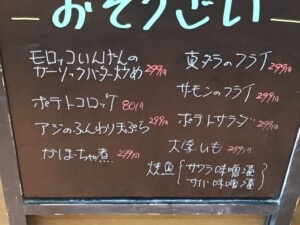 おそうざい
モロッコいんげんの
ガーリックバター炒め 299円
ポテトコロッケ 80円
アジのふんわり天ぷら 299円
かぼちゃ煮 299円
真ダラのフライ 299円
サーモンのフライ 299円
ポテトサラダ 299円
大学いも 299円
焼魚 サワラ味噌漬
サバ味噌漬